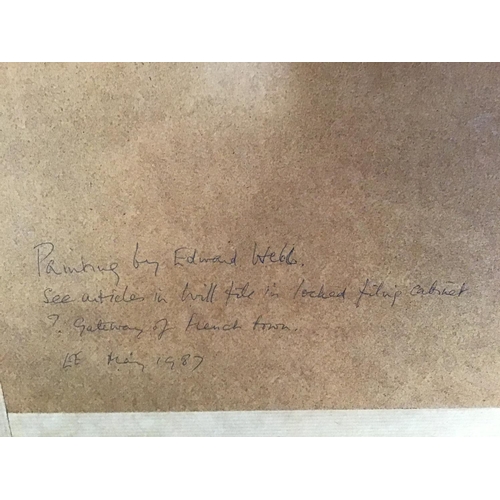 Painting by Edward Webb.
See articles in Will file in locked filing cabinet
?. Gateway of French town.
May 1987